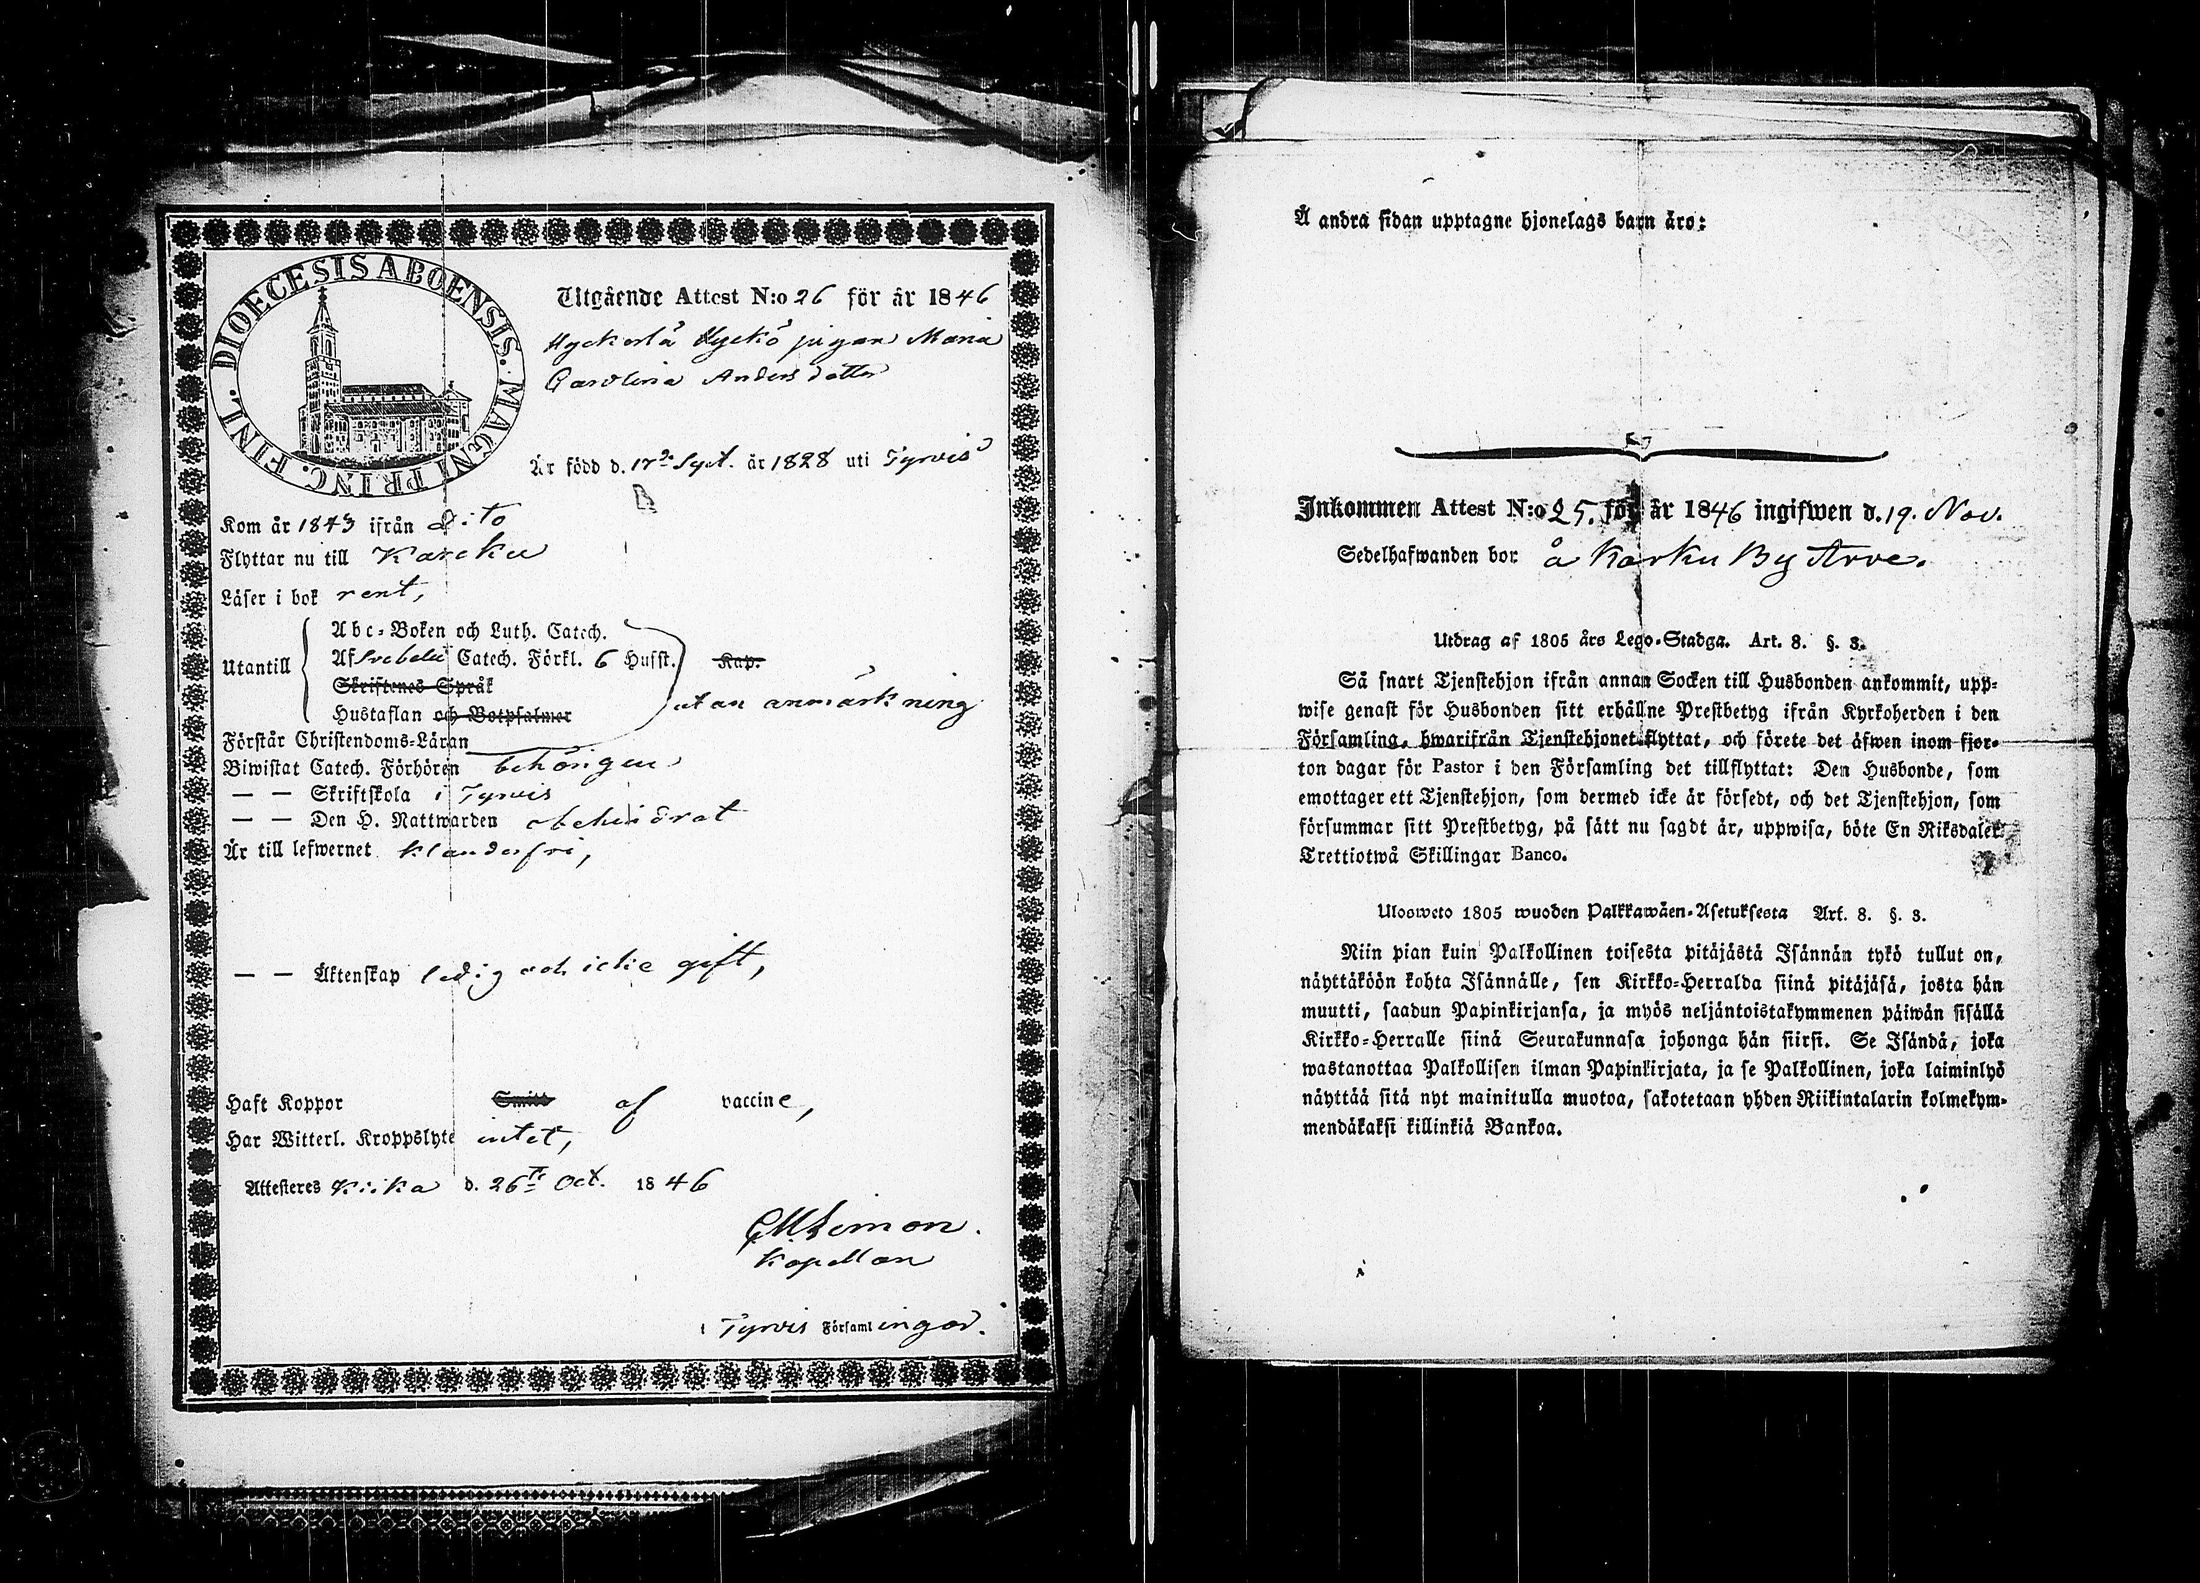 DIOECESIS ABOENSIS. MAGNI PRINC. FINL.
Utgående Attest N:o 26 för år 1846
pigan Maria
Carolina Andersdotter
Är född d. 17de Sept. år 1828 uti Tyrvis
Kom år 1843 ifrån Dito
Flyttar nu till Karcku
Läser i bok rent,
Utantill
Abc-Boken och Luth. Catech.
Af Svebelii Catech. Förkl. 6 Husst. Kap.
Skriftenes Språk
Hustaflan och Botpsalmer
utan anmärkning
Förstår Christendoms-Läran
Biwistat Catech. Förhören behörigen
— — Skriftskola i Tyrvis
— — Den H. Nattwarden obehindrat
Är till lefwernet klanderfri,
— — Äktenskap ledig och icke gift,
Haft Koppor Smitt af vaccine,
Har Witterl. Kroppslyte intet,
Attesteres Kiika d. 26te Oct. 1846
Kapellan
i Tyrvis Församlingar.
Å andra sidan upptagne hjonelags barn äro:
Inkommen Attest N:o 25. för år 1846 ingifwen d. 19. Nov.
Sedelhafwanden bor å Karku By Arve.
Utdrag af 1805 års Lego-Stadga. Art. 8. §. 3.
Så snart Tjenstehjon ifrån annan Socken till Husbonden ankommit, upp-
wise genast för Husbonden sitt erhållne Prestbetyg ifrån Kyrkoherden i den
Församling, hwarifrån Tjenstehjonet flyttat, och förete det äfwen inom fjor-
ton dagar för Pastor i den Församling det tillflyttat: Den Husbonde, som
emottager ett Tjenstehjon, som dermed icke är försedt, och det Tjenstehjon, som
försummar sitt Prestbetyg, på sätt nu sagdt är, uppwisa, böte En Riksdaler
Trettiotwå Skillingar Banco.
Ulosweto 1805 wuoden Palkkawäen-Asetuksesta Art. 8. §. 3.
Niin pian kuin Palkollinen toisesta pitäjästä Isännän tykö tullut on,
näyttäköön kohta Isännälle, sen Kirkko-Herralda siinä pitäjäsä, josta hän
muutti, saadun Papinkirjansa, ja myös neljäntoistakymmenen päiwän sisällä
Kirkko-Herralle siinä Seurakunnasa johonga hän siirsi. Se Isändä, joka
wastanottaa Palkollisen ilman Papinkirjata, ja se Palkollinen, joka laiminlyö
näyttää sitä nyt mainitulla muotoa, sakotetaan yhden Riikintalarin kolmekym-
mendäkaksi killinkiä Bankoa.